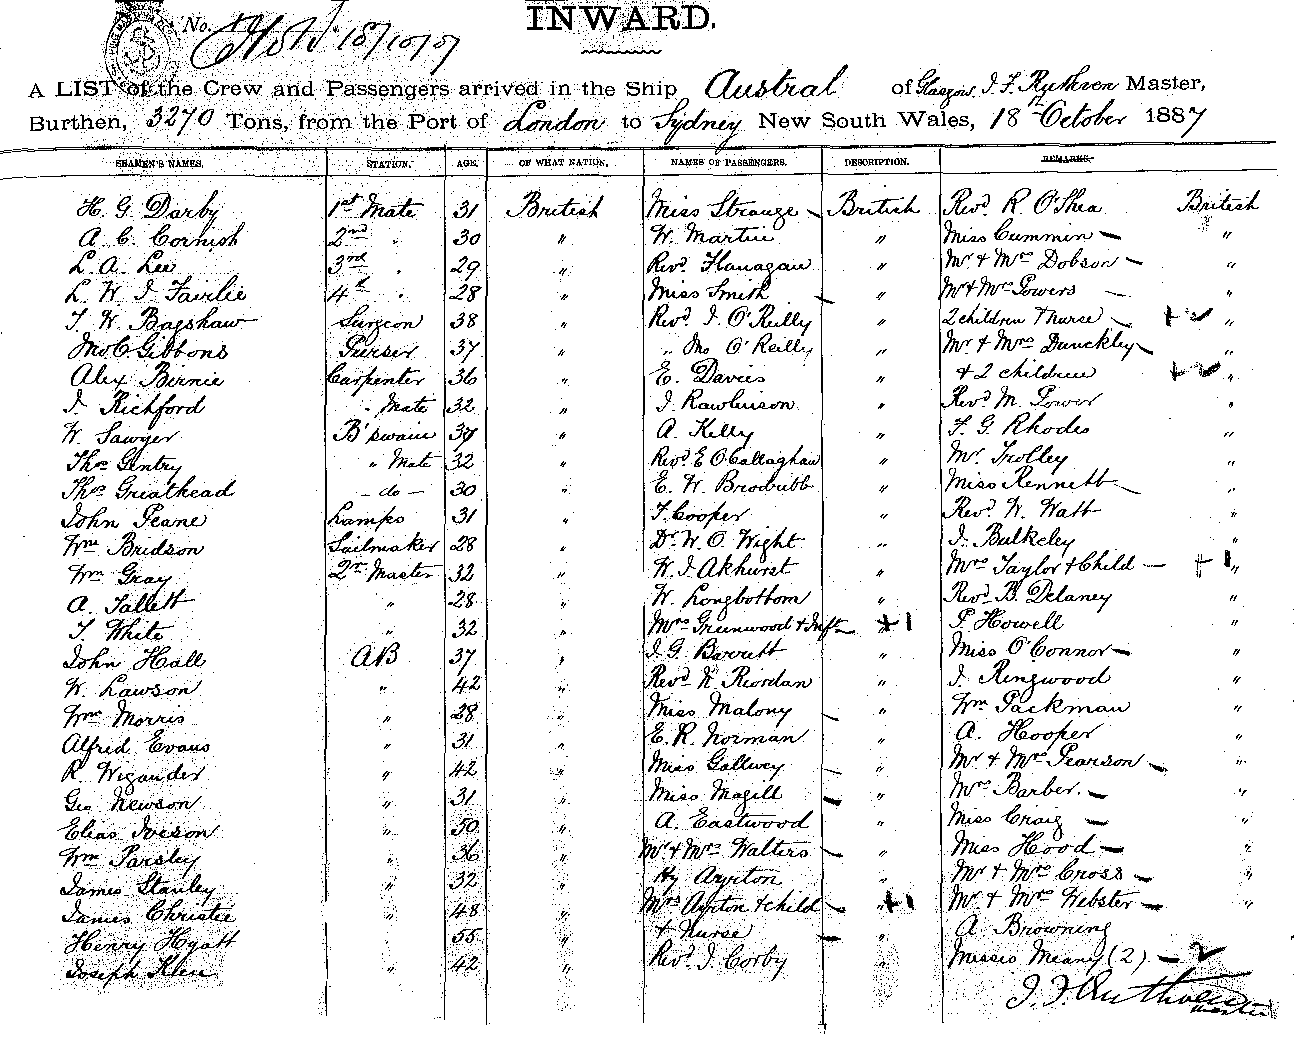 No.
18/10/87
INWARD.
A LIST of the Crew and Passengers arrived in the Ship Austral of Glasgow, J. F. Ruthven Master,
Burthen, 3270 Tons, from the Port of London to Sydney New South Wales, 18th October 1887
SEAMEN'S NAMES. STATION. AGE. OF WHAT NATION. NAMES OF PASSENGERS. DESCRIPTION. REMARKS.
H. G. Darby 1st Mate 31 British Miss Strange British Revd. R. O'Shea British
A. C. Cornish 2nd " 30 " W. Martin " Miss Cummin "
L. A. Lee 3rd " 29 " Revd. Flanagan " Mr & Mrs Dobson "
L. W. J. Fairlie 4th " 28 " Miss Smith " Mr & Mrs Powers "
T. W. Bagshaw Surgeon 38 " Revd. J. O'Reilly " 2 children & nurse +2 "
Jno C Gibbons Purser 37 " " Jno O'Reilly " Mr & Mrs Dunckley "
Alex Birnie Carpenter 36 " E. Davies " & 2 children +2 "
J. Richford " Mate 32 " J. Rawlinson " Revd. M. Power "
W. Sawyer B'swain 37 " A. Kelly " F. G. Rhodes "
Thos Gentry " Mate 32 " Revd. E O'Callaghan " Mr. Trolley "
Thos Greathead - do - 30 " E. W. Brodribb " Miss Rennett "
John Peane Lamps 31 " T. Cooper " Revd. W. Watt "
Wm Bridson Sailmaker 28 " Dr. W. O. Wight " J. Bulkeley "
Wm Gray 2r Master 32 " W. J. Akhurst " Mrs Taylor & Child +1 "
A. Tallett " 28 " W. Longbottom " Revd. B. Delaney "
T. White " 32 " Mrs Greenwood & Inft " +1 P. Howell "
John Hall AB 37 " J. G. Barrett " Miss O'Connor "
W. Lawson " 42 " Revd. Riordan " J. Ringwood "
Wm Morris " 28 " Miss Malony " Wm Packman "
Alfred Evans " 31 " E. R. Norman " A. Hooper "
R. Wigander " 42 " Miss Gallwey " Mr & Mrs Pearson "
Geo Newson " 31 " Miss Magill " Mrs Barber. "
Elias Iveson " 50 " A. Eastwood " Miss Craig "
Wm Parsley " 36 " Mr & Mrs Walters " Miss Hood "
James Stanley " 32 " Hy Ayrton " Mr & Mrs Cross "
James Christie " 48 " Mrs Ayrton & child " +1 Mr & Mrs Webster "
Henry Hyatt 55 " & Nurse " A. Browning
Joseph Klen " 42 " Revd. J. Corby " Misses Meany (2) 2
J. F. Ruthven
Master